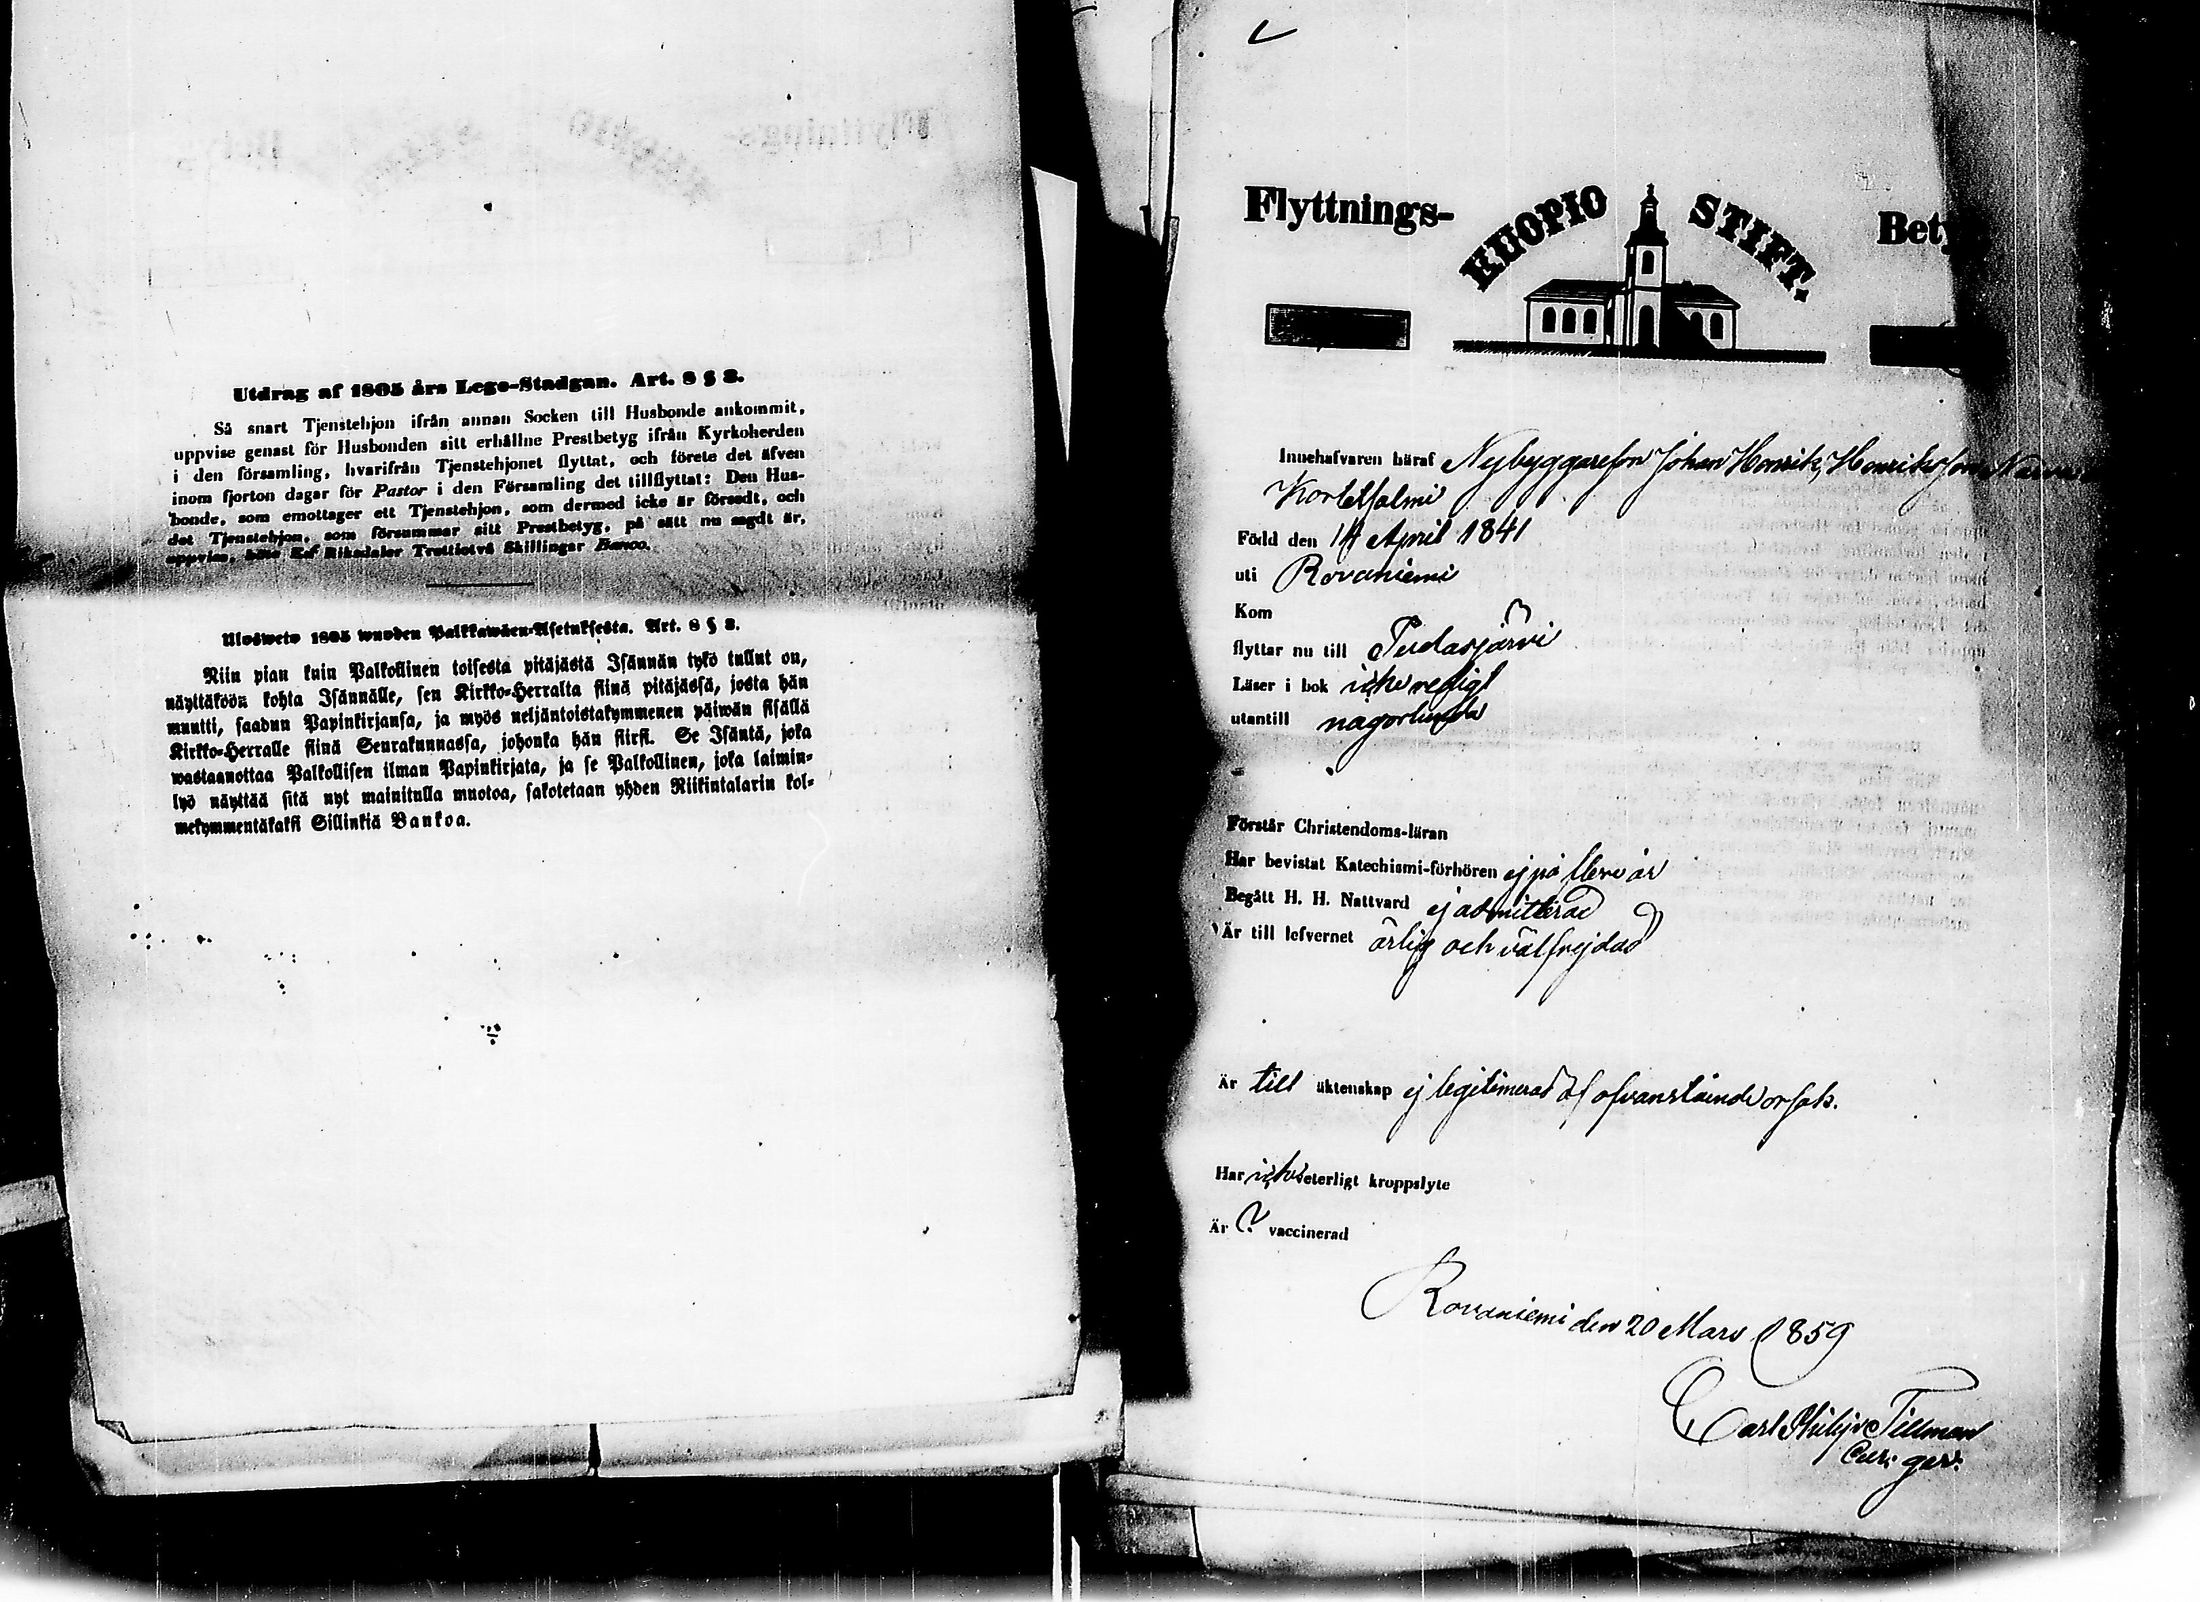 Utdrag af 1805 års Lego-Stadgan. Art. 8 § 2.
Så snart Tjenstehjon ifrån annan Socken till Husbonde ankommit,
uppvise genast för Husbonden sitt erhållne Prestbetyg ifrån Kyrkoherden
i den församling, hvarifrån Tjenstehjonet flyttat, och förete det äfven
inom fjorton dagar för Pastor i den Församling det tillflyttat: Den Hus-
bonde, som emottager ett Tjenstehjon, som dermed icke är försedt, och
det Tjenstehjon, som försummar sitt Prestbetyg, på sätt nu sagdt är,
uppvisa, böte En Riksdaler Trettiotvå Skillingar Banco.
Ulosweto 1805 wuoden Palkkawäen-Asetuksesta. Art. 8 § 2.
Niin pian kuin Palkollinen toisesta pitäjästä Isännän tykö tullut on,
näyttäköön kohta Isännälle, sen Kirkko-Herralta siinä pitäjässä, josta hän
muutti, saadun Papinkirjansa, ja myös neljäntoistakymmenen päiwän sisällä
Kirkko-Herralle siinä Seurakunnassa, johonka hän siirsi. Se Isäntä, joka
wastaanottaa Palkollisen ilman Papinkirjata, ja se Palkollinen, joka laimin-
lyö näyttää sitä nyt mainitulla muotoa, sakotetaan yhden Riikintalarin kol-
mekymmentäkaksi Sillinkiä Bankoa.
Flyttnings- KUOPIO STIFT. Bety
Innehafvaren häraf Nybyggareson Johan Henrik Henriksson
Kortesalmi
Född den 14 April 1841
uti Rovaniemi
Kom
flyttar nu till Pudasjärvi
Läser i bok icke redigt
utantill någorlunda
Förstår Christendoms-läran
Har bevistat Katechismi-förhören ej på flere år
Begått H. H. Nattvard ej admitterad
Är till lefvernet ärlig och välfrejdad
Är till äktenskap ej legitimerad af ofvanstående orsak.
Har icke veterligt kroppslyte
Är ? vaccinerad
Rovaniemi den 20 Mars 1859
Carl Philip Tillman